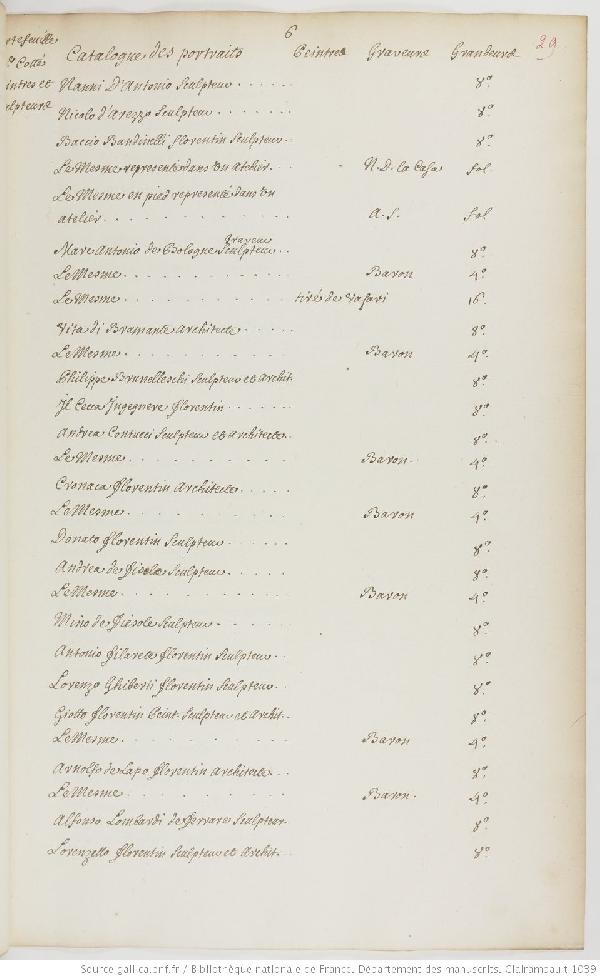 6
29
Catalogue des portraits Peintres Graveurs Grandeurs
intres et
Nanni D'Antonio Sculpteur 8º
Nicolo d'Arezzo Sculpteur 8º
Baccio Bandinelli florentin Sculpteur 8º
Le Mesme representé dans un atelier N. D. la Casa fol
Le Mesme en pied representé dans un
atelier A. S. fol
graveur
Marc Antonio de Bologne Sculpteur 8º
Le Mesme Baron 4º
Le Mesme tiré de Vasari 16º
Vita di Bramante Architecte 8º
Le Mesme Baron 4º
Philippe Brunelleschi Sculpteur et Archit. 8º
Il Cecca Ingegnere florentin 8º
Andrea Contucci Sculpteur et Architecte 8º
Le Mesme Baron 4º
Cronaca florentin Architecte 8º
Le Mesme Baron 4º
Donato florentin Sculpteur 8º
Andrea de Fiesole Sculpteur 8º
Le Mesme Baron 4º
Mino de Fiesole Sculpteur 8º
Antonio filarete florentin Sculpteur 8º
Lorenzo Ghiberti florentin Sculpteur 8º
Giotto florentin Peint. Sculpteur et Archit. 8º
Le Mesme Baron 4º
Arnolfo de Lapo florentin Architecte 8º
Le Mesme Baron 4º
Alfonso Lombardi de ferrare Sculpteur 8º
Lorenzetto florentin Sculpteur et Archit. 8º
Source gallica.bnf.fr / Bibliothèque nationale de France. Département des manuscrits. Clairambault 1039